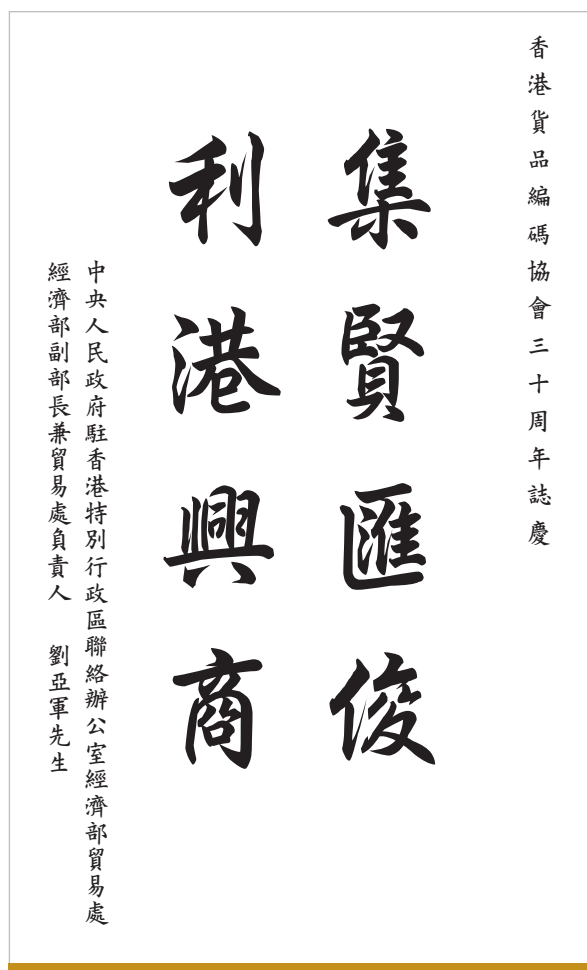 香港貨品編碼協會三十周年誌慶
集賢匯俊
利港興商
中央人民政府駐香港特別行政區聯絡辦公室經濟部貿易處
經濟部副部長兼貿易處負責人 劉亞軍先生